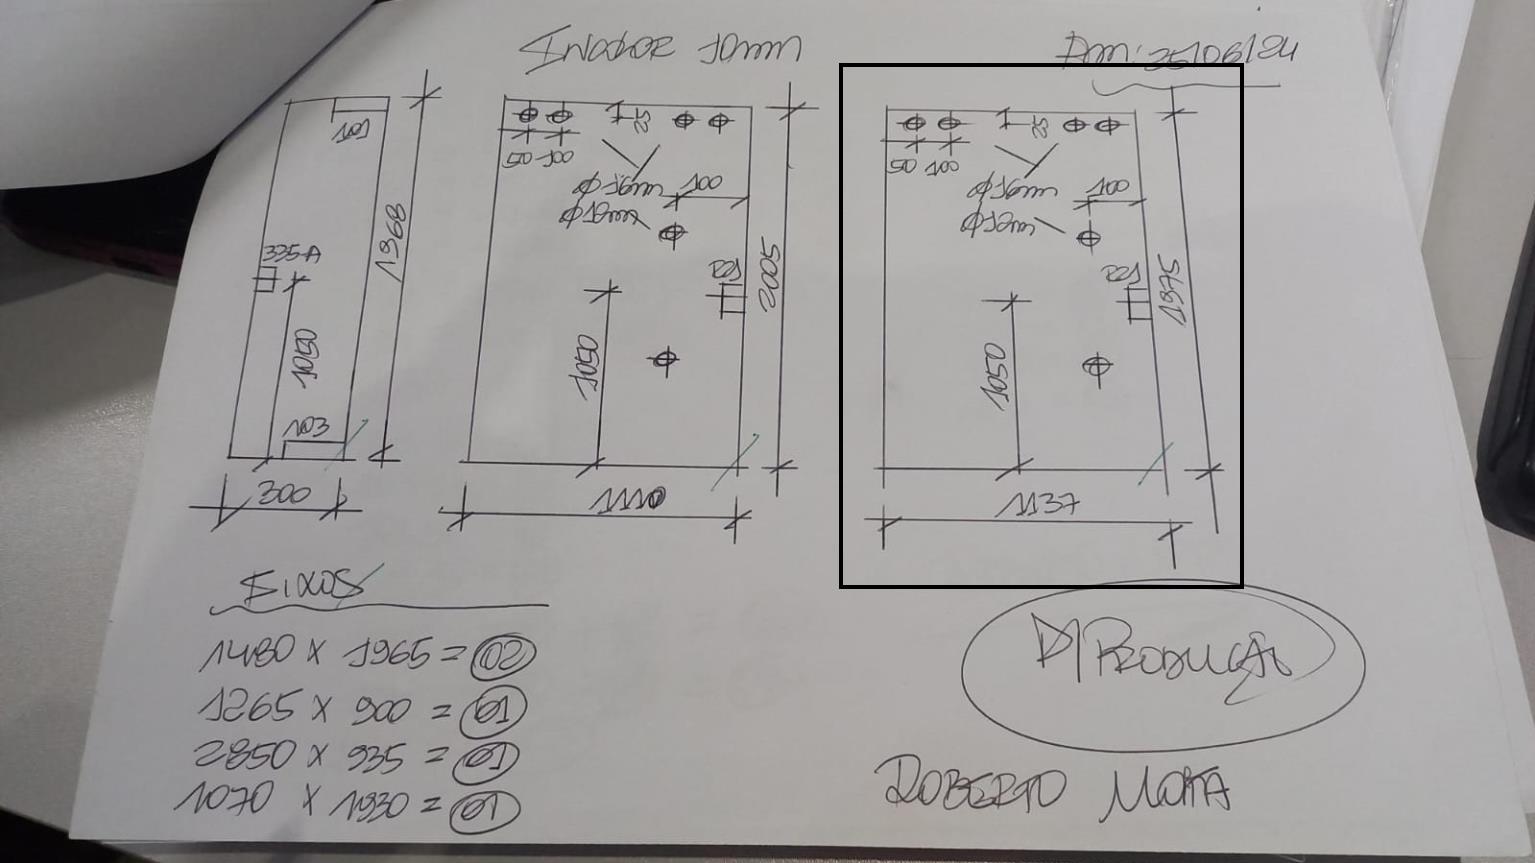 INCOLOR 10mm
Am: 25/06/24
101
335-A
1368
1050
103
300
25
50 100
Ø16mm
100
Ø12mm
2005
1050
1110
25
50 100
Ø16mm
100
Ø12mm
1975
1050
1137
EIXOS
1480 x 1965 = 02
1265 x 900 = 01
2850 x 935 = 01
1070 x 1930 = 01
P/ PRODUÇÃO
ROBERTO MOTA